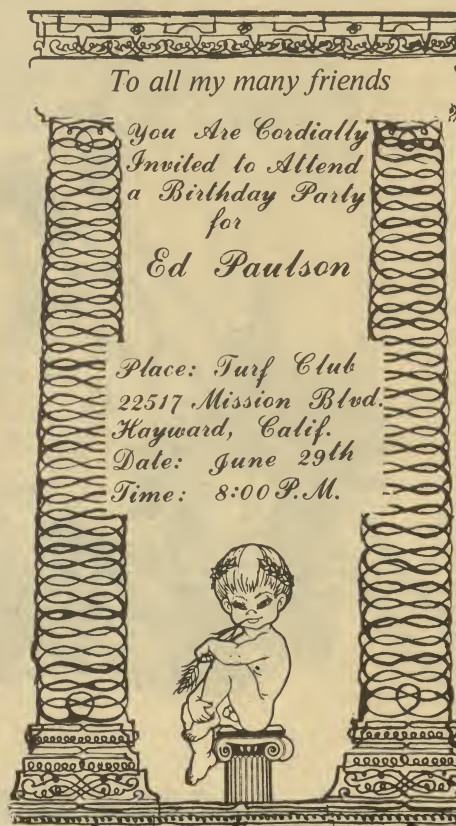 To all my many friends
You Are Cordially
Invited to Attend
a Birthday Party
for
Ed Paulson
Place: Turf Club
22517 Mission Blvd.
Hayward, Calif.
Date: June 29th
Time: 8:00 P.M.